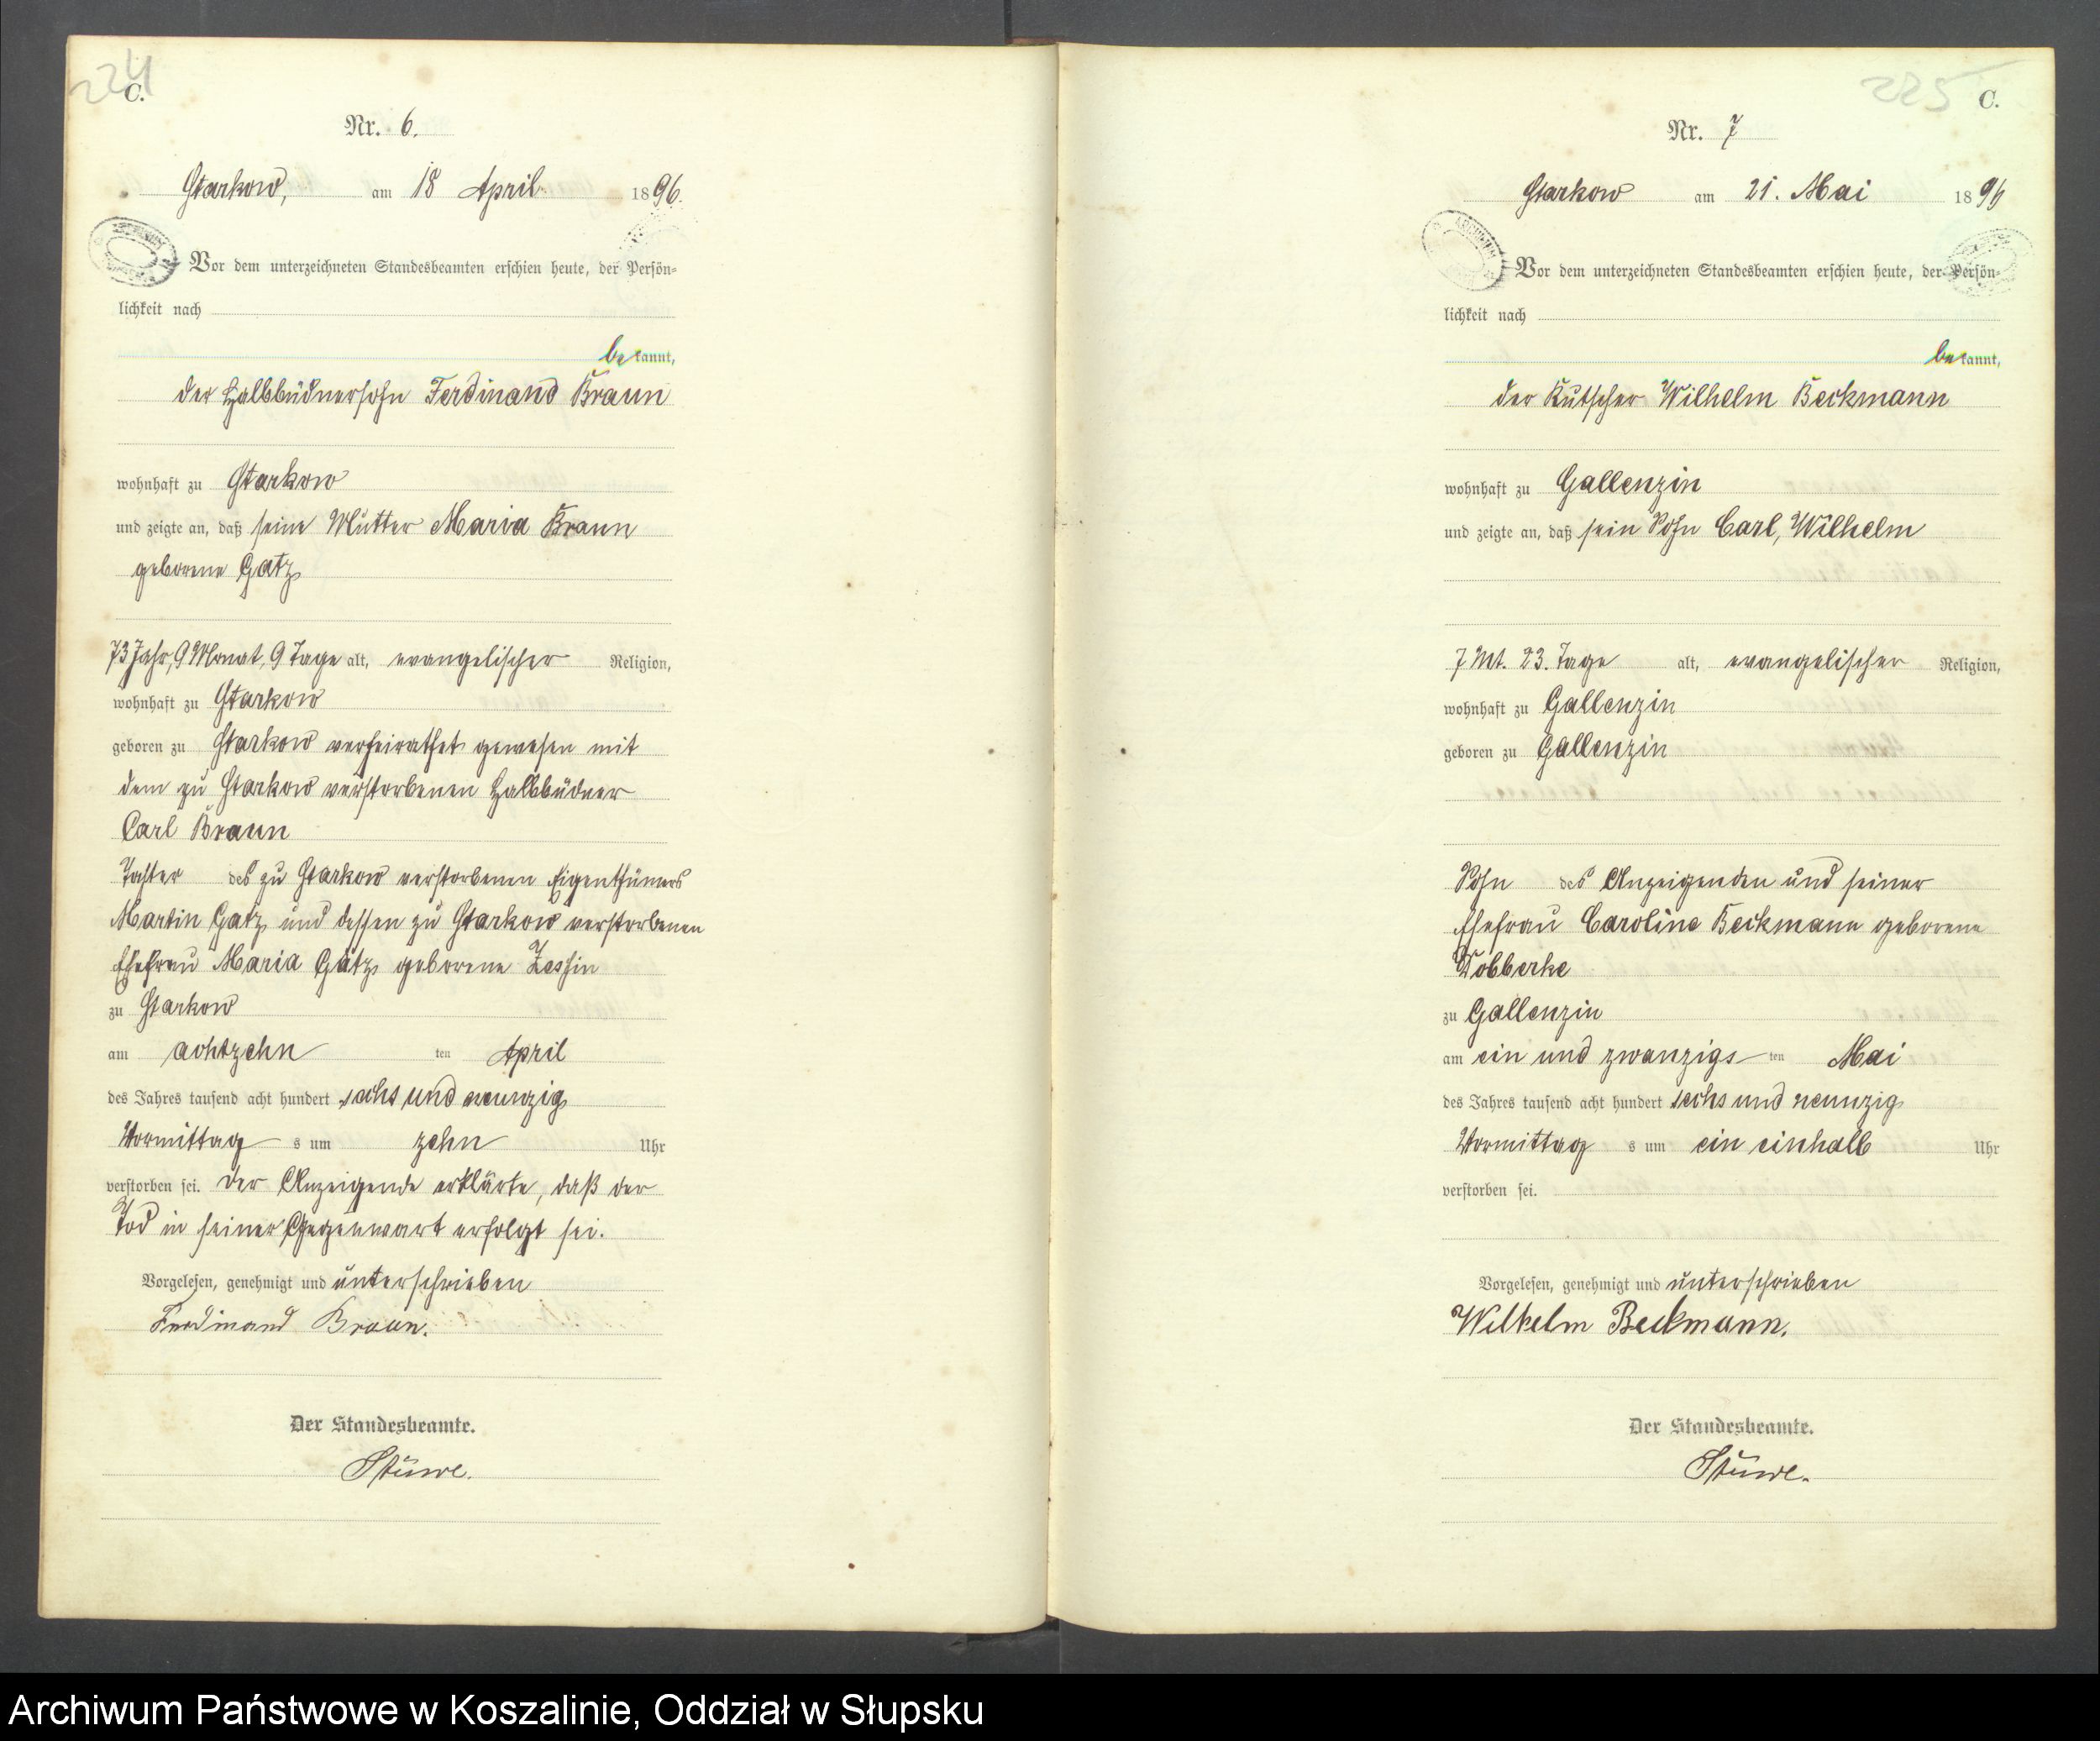 224
C.
Nr. 6.
Starkow, am 18 April 1896.
Vor dem unterzeichneten Standesbeamten erschien heute, der Persön-
lichkeit nach
bekannt,
der Halbbüdnersohn Ferdinand Braun
wohnhaft zu Starkow
und zeigte an, daß seine Mutter Maria Braun
geborene Gatz
73 Jahr, 9 Monat, 9 Tage alt, evangelischer Religion,
wohnhaft zu Starkow
geboren zu Starkow verheirathet gewesen mit
dem zu Starkow verstorbenen Halbbüdner
Carl Braun
Tochter des zu Starkow verstorbenen Eigenthümers
Martin Gatz und dessen zu Starkow verstorbenen
Ehefrau Maria Gatz geborene Zessin
zu Starkow
am achtzehn ten April
des Jahres tausend acht hundert sechs und neunzig
Vormittag s um zehn Uhr
verstorben sei. Der Anzeigende erklärte, daß der
Tod in seiner Gegenwart erfolgt sei.
Vorgelesen, genehmigt und unterschrieben
Ferdinand Braun.
Der Standesbeamte.
Stüwe.
225
C.
Nr. 7
Starkow am 21. Mai 1896
Vor dem unterzeichneten Standesbeamten erschien heute, der Persön-
lichkeit nach
bekannt,
der Kutscher Wilhelm Beckmann
wohnhaft zu Gallenzin
und zeigte an, daß sein Sohn Carl, Wilhelm
7 Mt. 23. Tage alt, evangelischer Religion,
wohnhaft zu Gallenzin
geboren zu Gallenzin
Sohn des Anzeigenden und seiner
Ehefrau Caroline Beckmann geborene
Wobberke
zu Gallenzin
am ein und zwanzigs ten Mai
des Jahres tausend acht hundert sechs und neunzig
Vormittag s um ein einhalb Uhr
verstorben sei.
Vorgelesen, genehmigt und unterschrieben
Wilhelm Beckmann.
Der Standesbeamte.
Stüwe.
Archiwum Państwowe w Koszalinie, Oddział w Słupsku